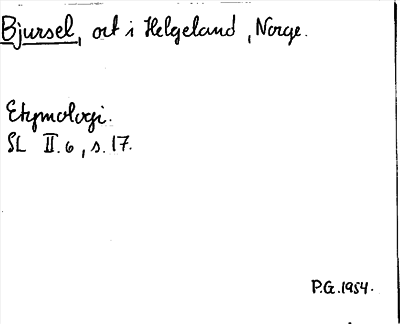 Bjursel, ort i Helgeland, Norge.
Etymologi.
SL II.6, s.17.
P.G.1954.